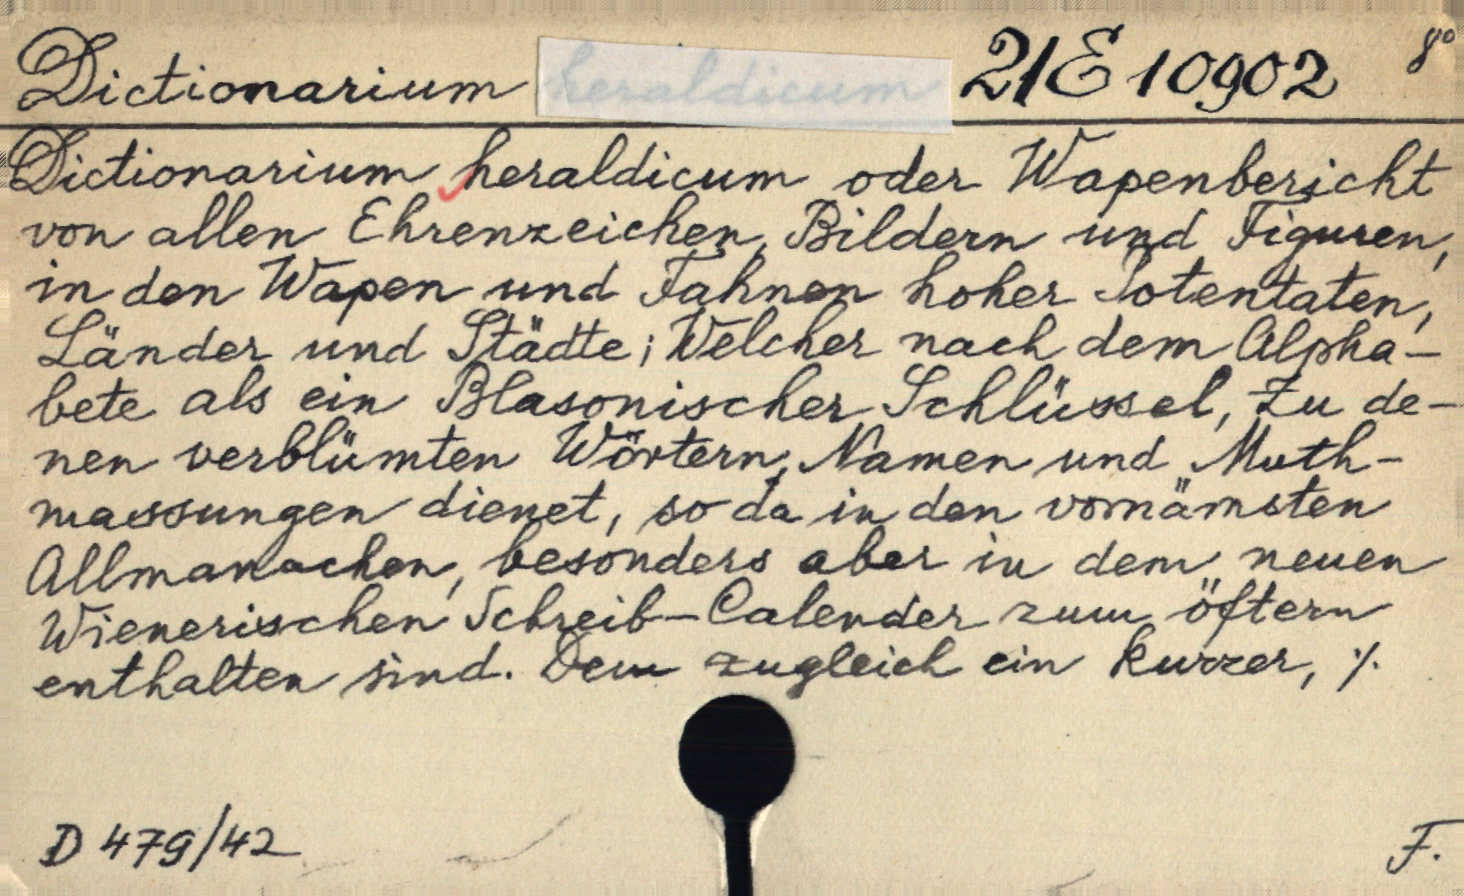 Dictionarium heraldicum 21E 10902 8°
Dictionarium heraldicum oder Wapenbericht
von allen Ehrenzeichen, Bildern und Figuren,
in den Wapen und Fahnen hoher Potentaten,
Länder und Städte; Welcher nach dem Alpha-
bete als ein Blasonischer Schlüssel, zu de-
nen verblümten Wörtern, Namen und Muth-
massungen dienet, so da in den vornämsten
Allmanachen, besonders aber in dem neuen
Wienerischen Schreib-Calender zum öftern
enthalten sind. Dem zugleich ein kurzer, ·/.
D 479/42 F.